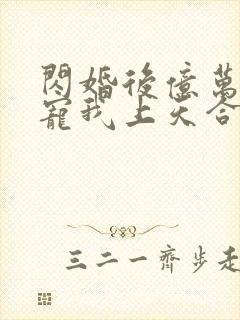 閃婚後億萬
寵我上天合
三二一齊步走